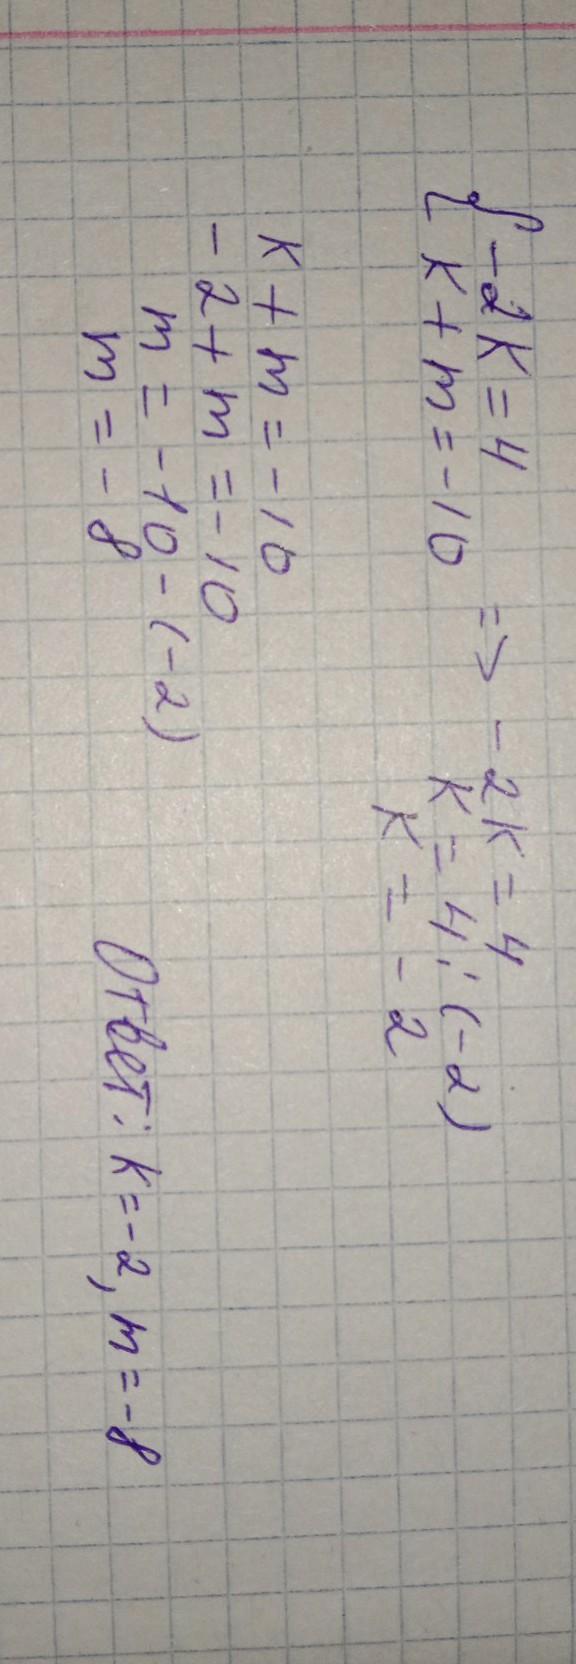 { -2k = 4 => -2k = 4
k + m = -10 k = 4 : (-2)
k = -2
k + m = -10
-2 + m = -10
m = -10 - (-2)
m = -8
Ответ: k = -2, m = -8